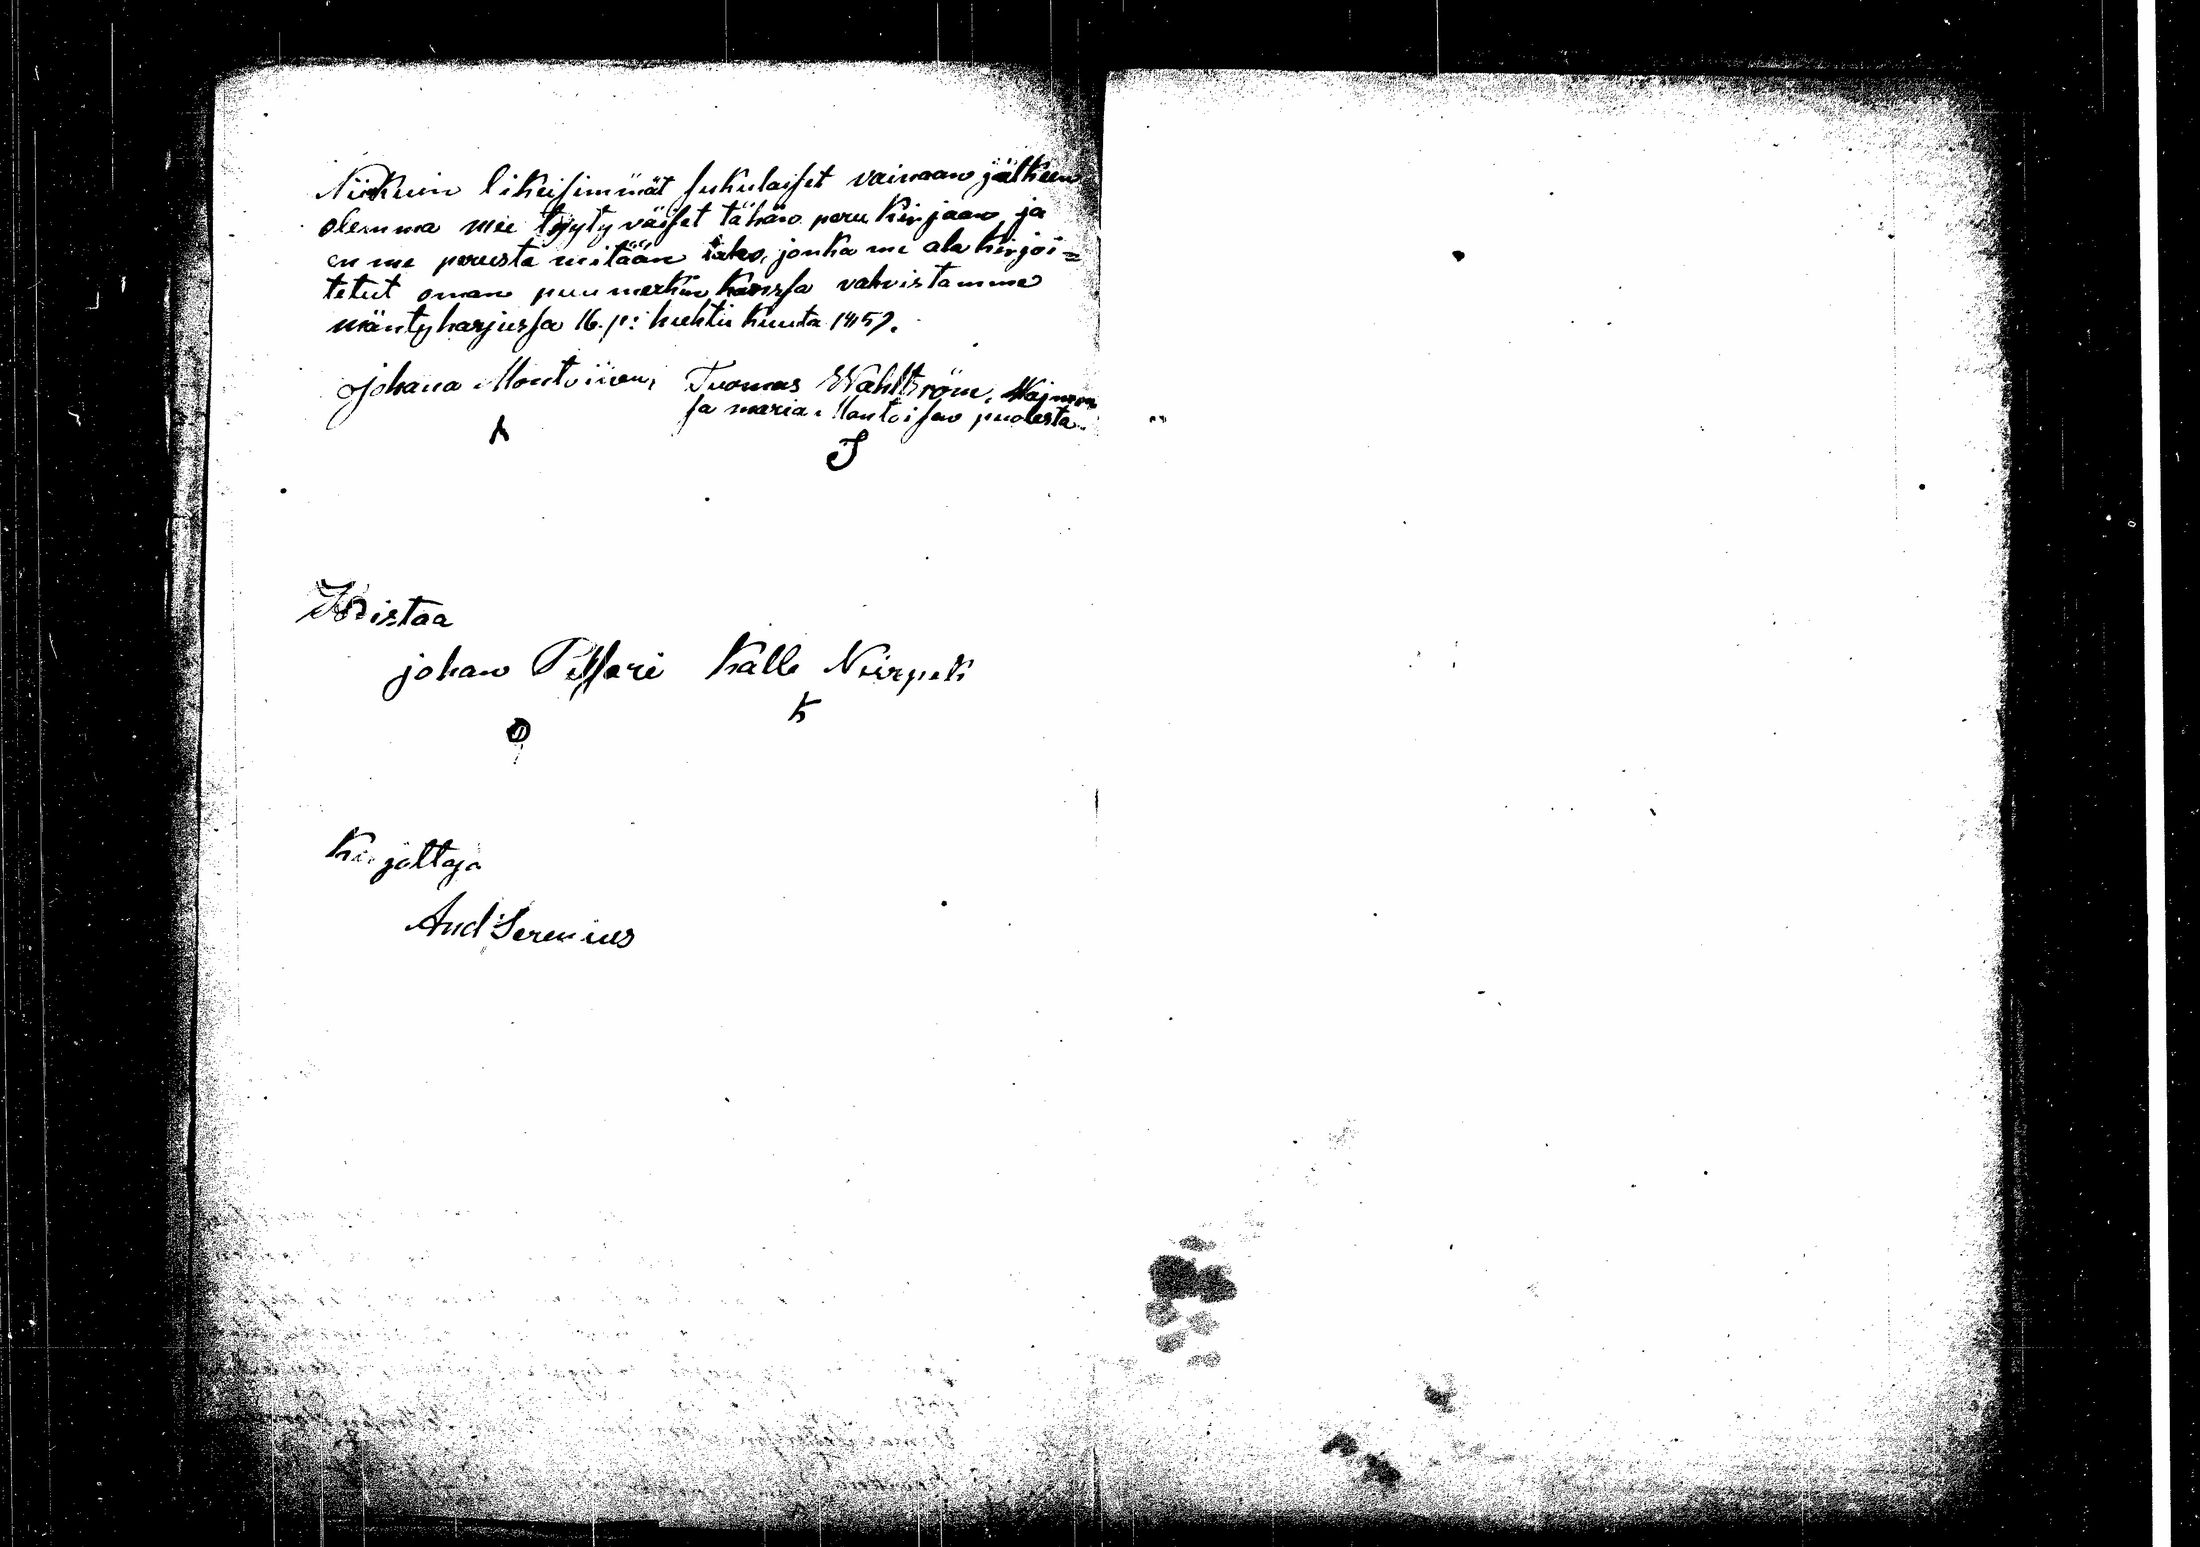 Niinkuin likeisimmät sukulaiset vainaan jälkeen
olemma mei tyytyväiset tähän peru kirjaan, ja
en me perusta mitään jakoa, jonka me ala kirjoi=
tetut oman puumerkin kanssa vahvistamme
mäntyharjussa 16. p: huhti kuuta 1857.
Johana Montoinen, Tuomas Wahlström,
ja maria Montoisen puolesta.
K
S
Todistaa
johan Pessari Kalle Nurpeti
K
Kirjottaja
And Serenius